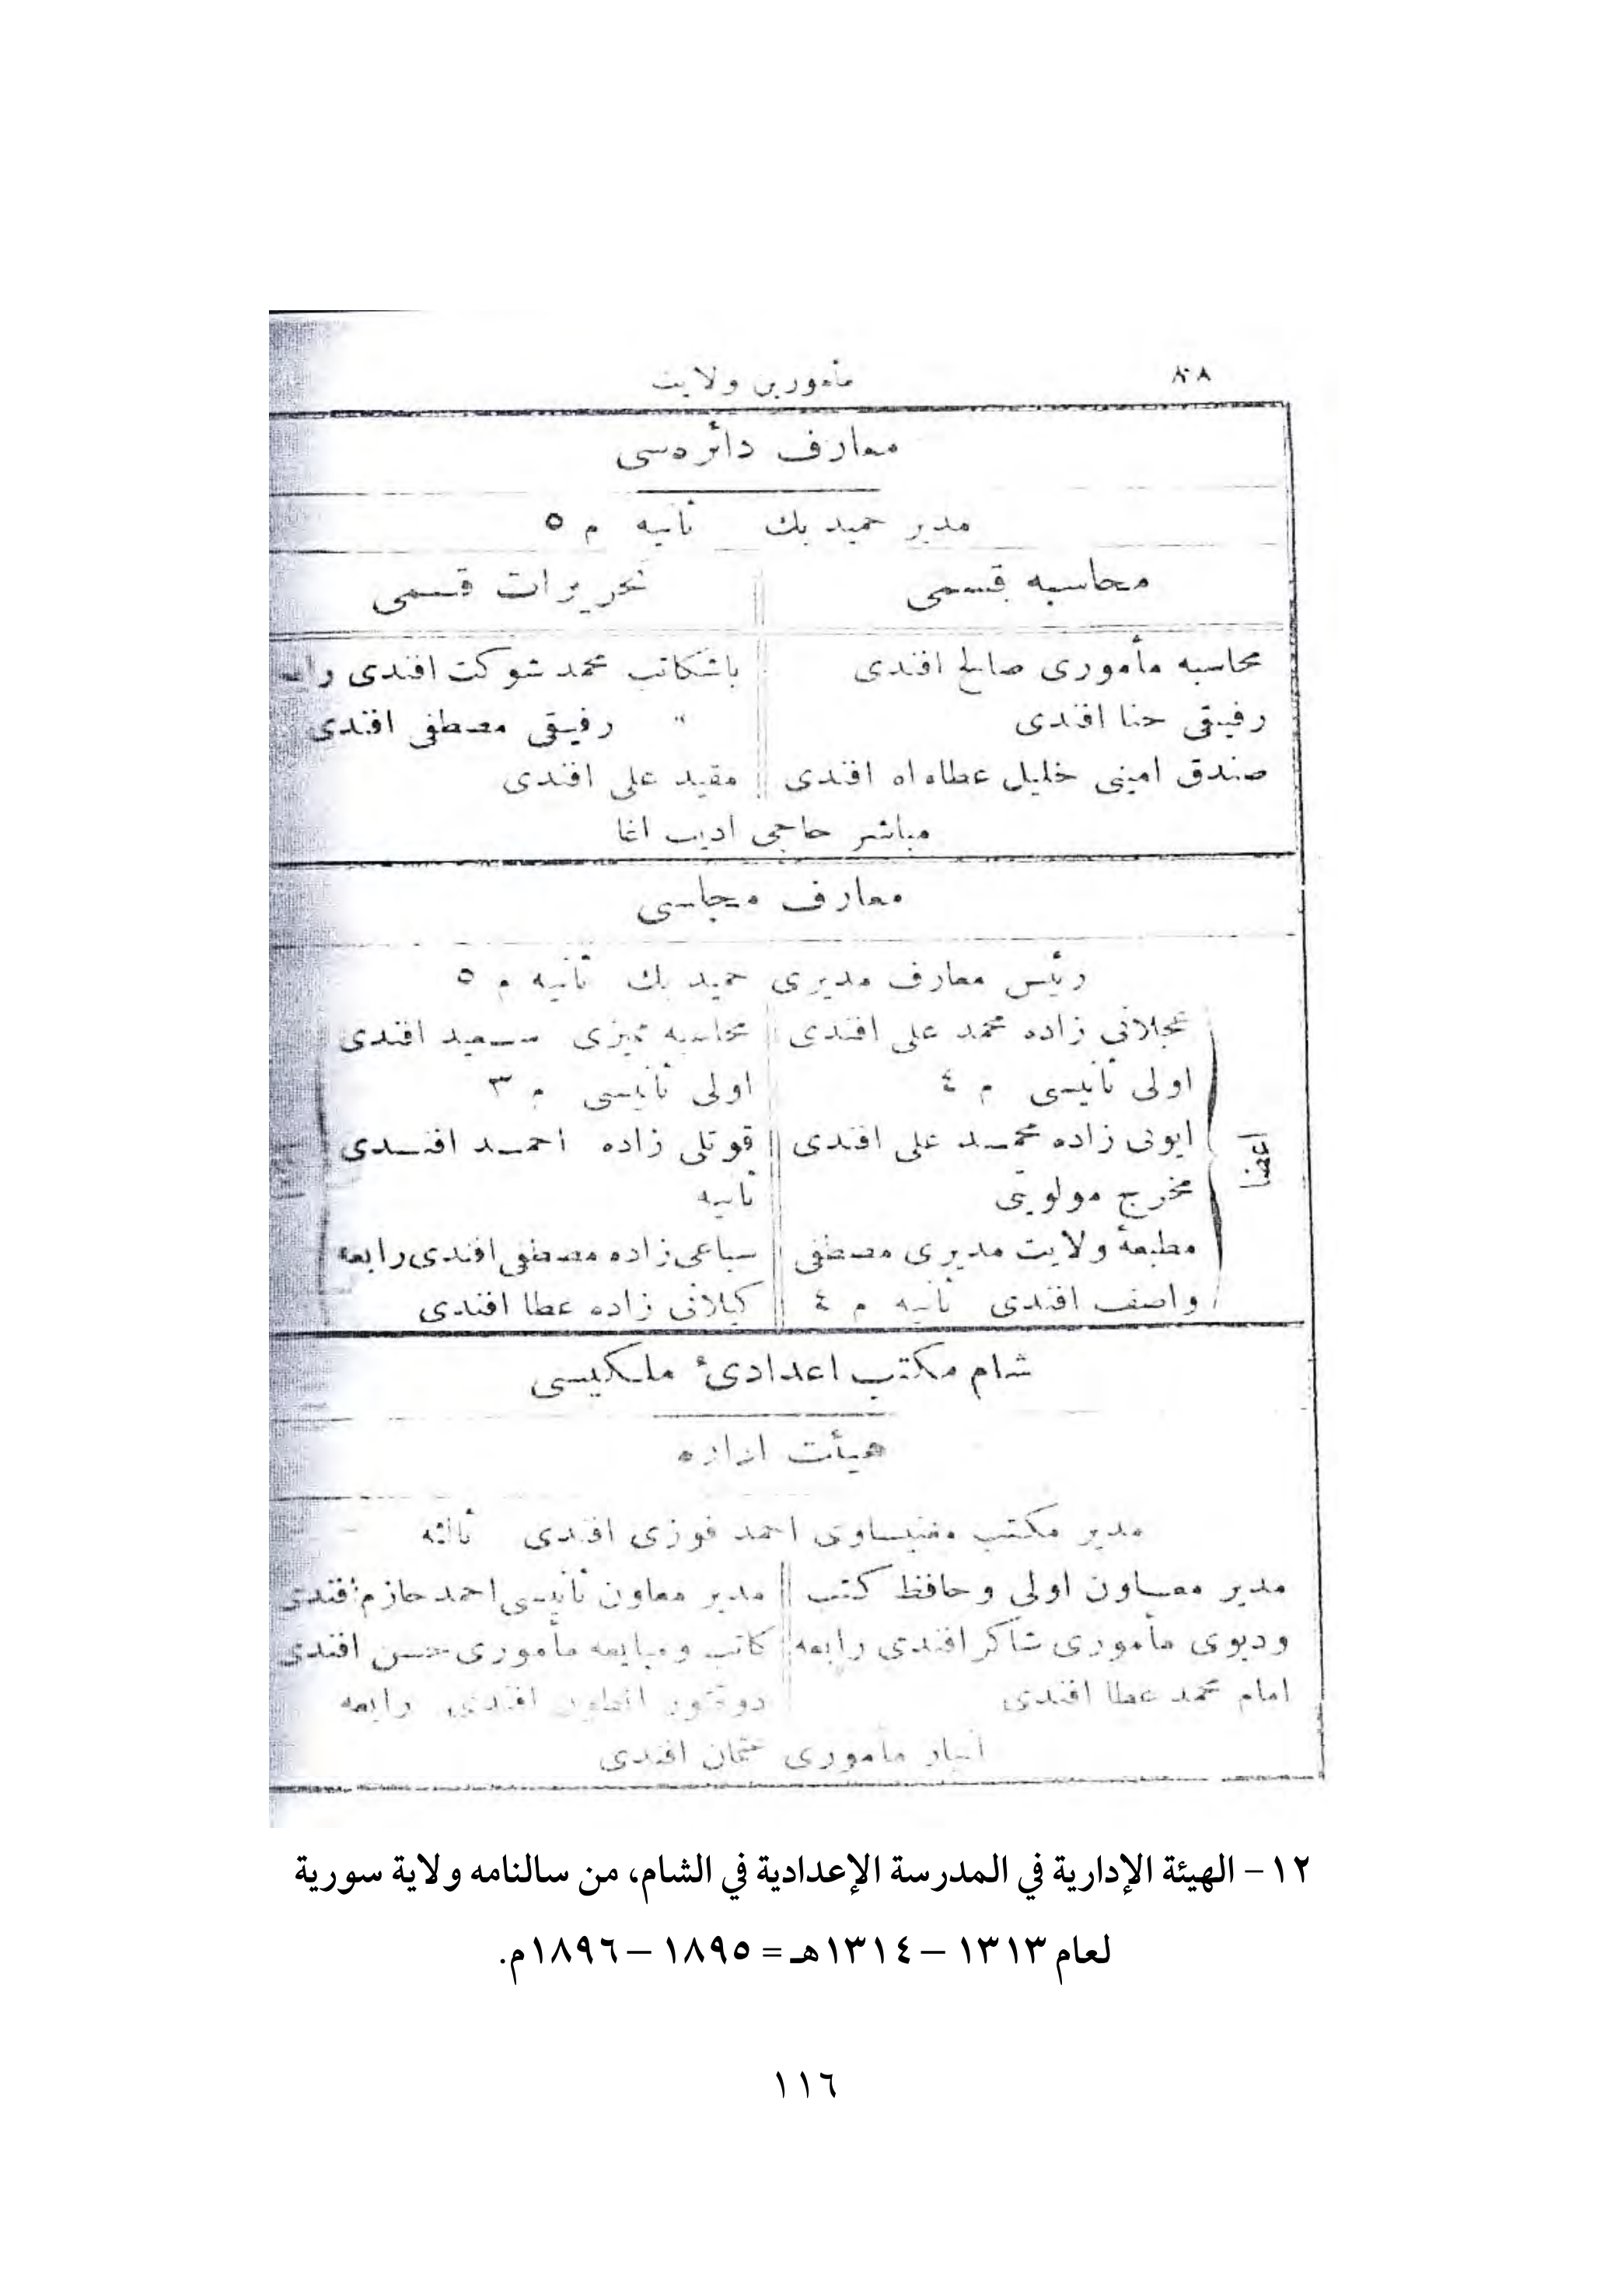 مأمورين ولايت
معارف دائره‌سى
مدير حميد بك ثانيه م ٥
محاسبه قسمى
تحريرات قسمى
محاسبه مأمورى صالح افندى
باشكاتب محمد شوكت افندى
رفيقى حنا افندى
" رفيقى مصطفى افندى
صندق امينى خليل عطاء اه افندى
مقيد على افندى
مباشر حاجى اديب اغا
معارف مجلسى
رئيس معارف مديرى حميد بك ثانيه م ٥
اعضا
عجلانى زاده محمد على افندى
محاسبه مميزى سعيد افندى
اولى ثانيسى م ٤
اولى ثانيسى م ٣
ايوبى زاده محمد على افندى
قوتلى زاده احمد افندى
مخرج مولويتى
ثانيه
مطبعۀ ولايت مديرى مصطفى
سباعى زاده مصطفى افندى رابعه
واصف افندى ثانيه م ٤
كيلانى زاده عطا افندى
شام مكتب اعدادئ ملكيسى
هيئت اداره
مدير مكتب مغنيساوى احمد فوزى افندى ثالثه
مدير معاون اولى وحافظ كتب
مدير معاون ثانيسى احمد حازم افندى
ودپوى مأمورى شاكر افندى رابعه
كاتب ومبايعه مأمورى حسن افندى
امام محمد عطا افندى
دوقتور انطون افندى رابعه
انبار مأمورى عثمان افندى
١٢ – الهيئة الإدارية في المدرسة الإعدادية في الشام، من سالنامه ولاية سورية
لعام ١٣١٣ – ١٣١٤هـ = ١٨٩٥ – ١٨٩٦م.
١١٦